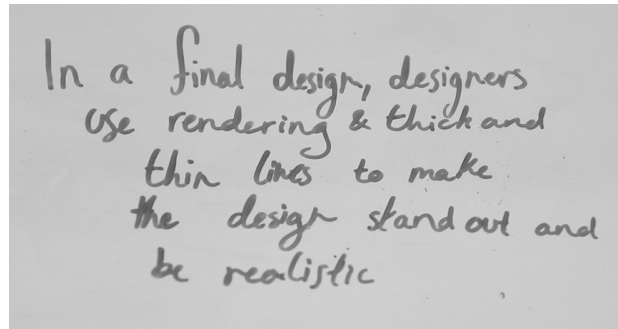 In a final design, designers
use rendering & thick and
thin lines to make
the design stand out and
be realistic